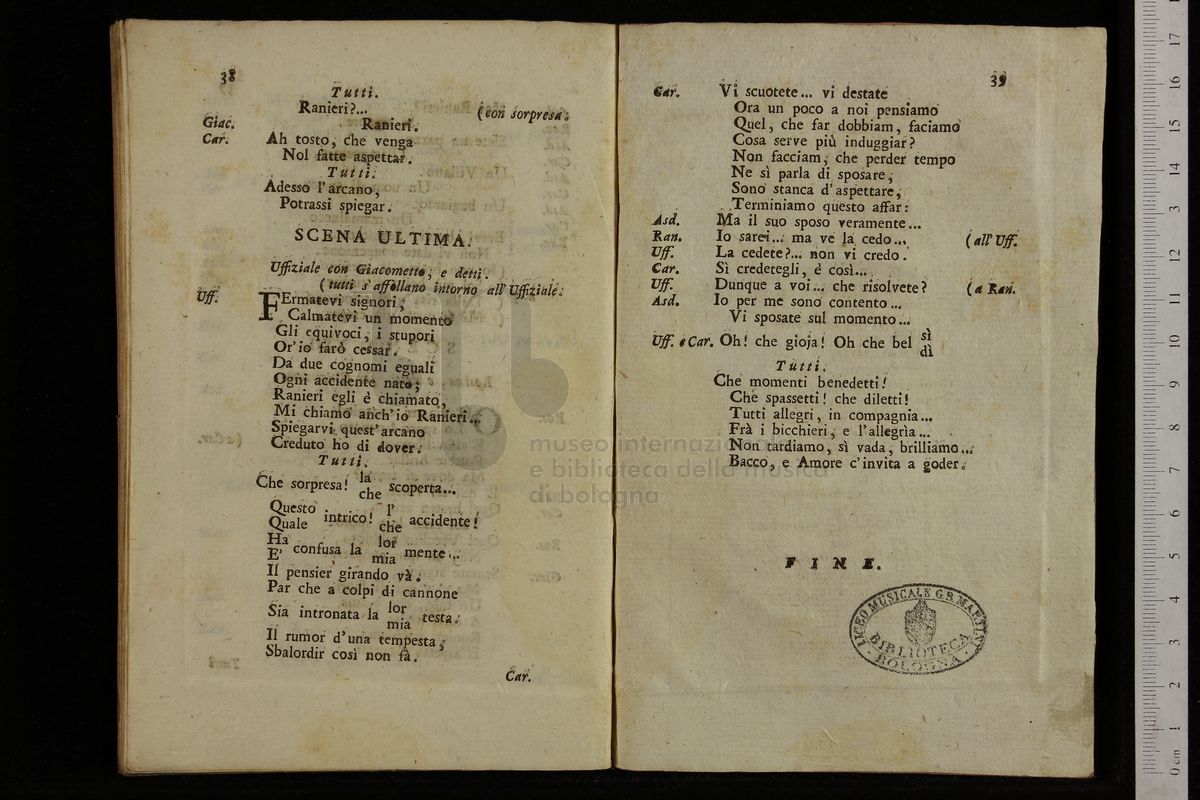 38
Tutti.
Ranieri?... (con sorpresa.
Giac. Ranieri.
Car. Ah tosto, che venga
Nol fatte aspettar.
Tutti.
Adesso l'arcano,
Potrassi spiegar.
SCENA ULTIMA.
Uffiziale con Giacometto, e detti.
(tutti s'affollano intorno all'Uffiziale.
Uff. FErmatevi signori,
Calmatevi un momento
Gli equivoci, i stupori
Or'io farò cessar.
Da due cognomi eguali
Ogni accidente nato;
Ranieri egli è chiamato,
Mi chiamo anch'io Ranieri...
Spiegarvi quest'arcano
Creduto ho di dover.
Tutti.
Che sorpresa! la che scoperta...
Questo Quale intrico! l' che accidente!
Ha E' confusa la lor mia mente...
Il pensier girando và.
Par che a colpi di cannone
Sia intronata la lor mia testa.
Il rumor d'una tempesta,
Sbalordir così non fà.
Car.
39
Car. Vi scuotete... vi destate
Ora un poco a noi pensiamo
Quel, che far dobbiam, faciamo
Cosa serve più induggiar?
Non facciam, che perder tempo
Ne sì parla di sposare,
Sono stanca d'aspettare,
Terminiamo questo affar:
Asd. Ma il suo sposo veramente...
Ran. Io sarei... ma ve la cedo... (all'Uff.
Uff. La cedete?... non vi credo.
Car. Sì credetegli, è così...
Uff. Dunque a voi... che risolvete? (a Ran.
Asd. Io per me sono contento...
Vi sposate sul momento...
Uff. e Car. Oh! che gioja! Oh che bel sì dì
Tutti.
Che momenti benedetti!
Che spassetti! che diletti!
Tutti allegri, in compagnia...
Frà i bicchieri, e l'allegrìa...
Non tardiamo, sì vada, brilliamo...
Bacco, e Amore c'invita a goder.
FINE.
LICEO MUSICALE G.B. MARTINI
BIBLIOTECA
BOLOGNA
museo internazionale
e biblioteca della musica
di bologna
0 cm 1 2 3 4 5 6 7 8 9 10 11 12 13 14 15 16 17